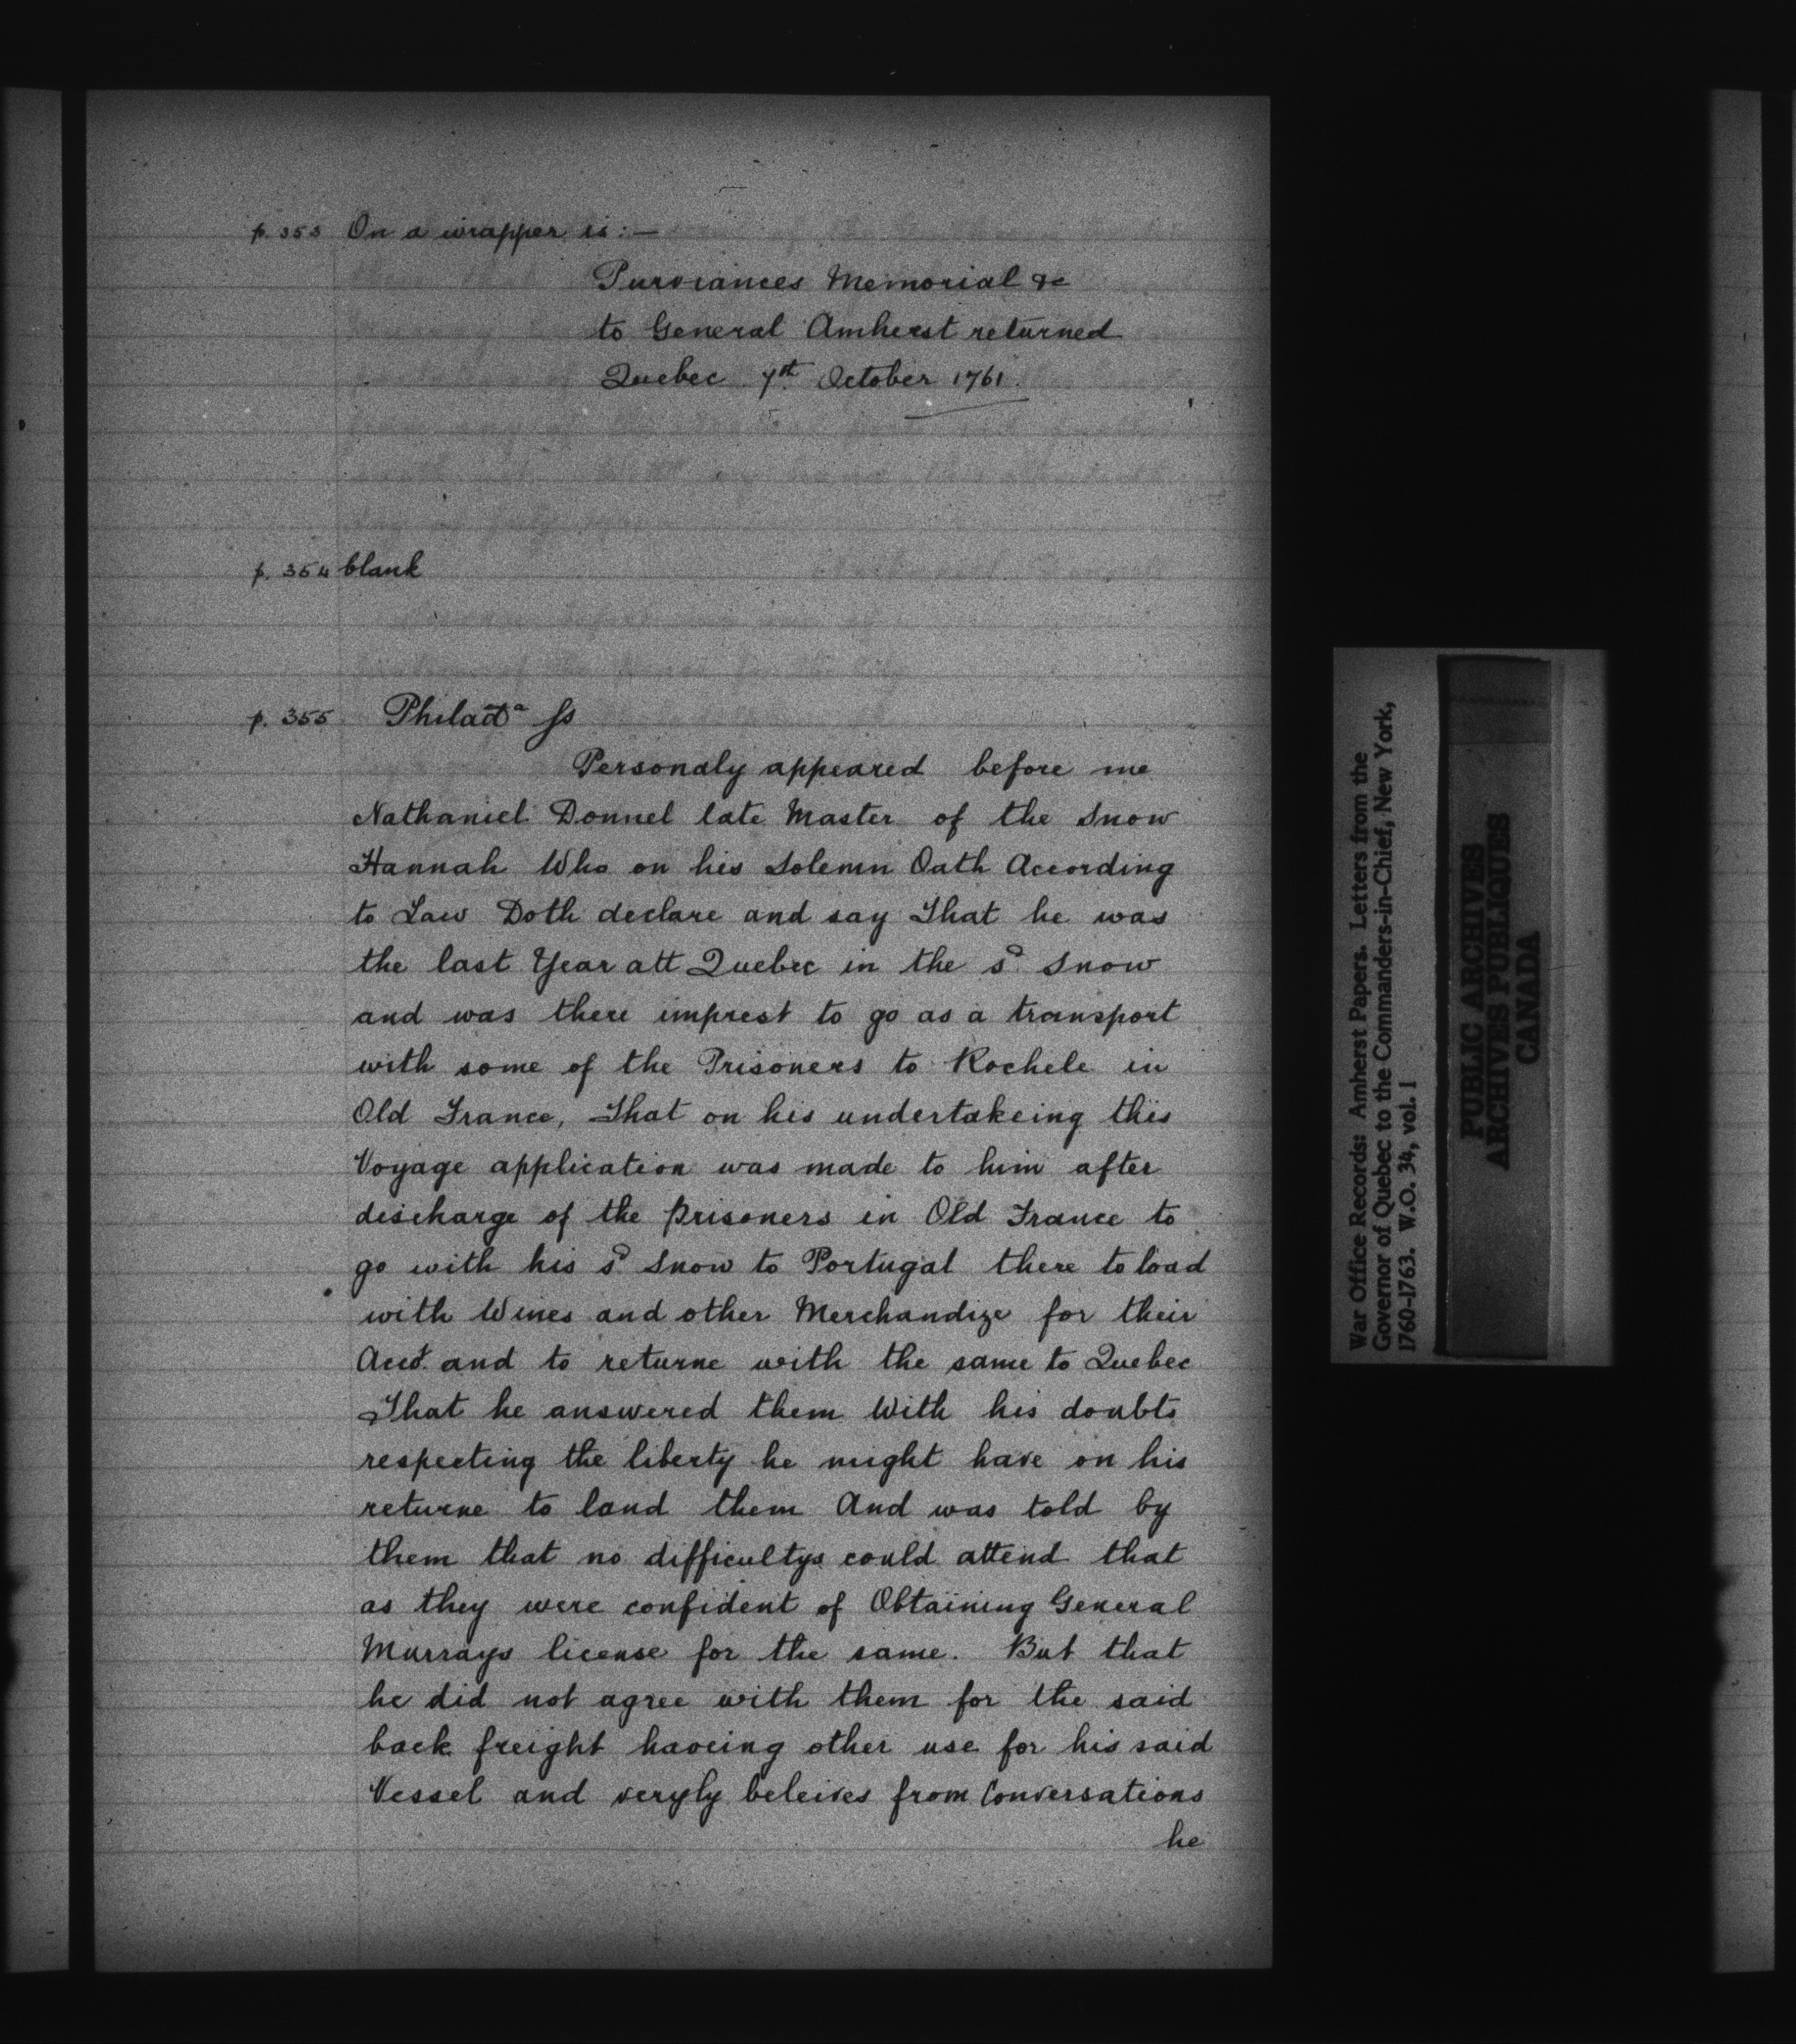 p. 353 On a wrapper is:—
Purviances Memorial &c
to General Amherst returned
Quebec 7th October 1761.
p. 354 blank
p. 355 Philada ss
Personaly appeared before me
Nathaniel Donnel late Master of the Snow
Hannah Who on his Solemn Oath According
to Law Doth declare and say That he was
the last Year att Quebec in the sd Snow
and was there imprest to go as a transport
with some of the Prisoners to Rochele in
Old France, That on his undertakeing this
Voyage application was made to him after
discharge of the prisoners in Old France to
go with his sd Snow to Portugal there to load
with Wines and other Merchandize for their
Acct. and to returne with the same to Quebec
That he answered them With his doubts
respecting the liberty he might have on his
returne to land them And was told by
them that no difficultys could attend that
as they were confident of Obtaining General
Murrays license for the same. But that
he did not agree with them for the said
back freight haveing other use for his said
Vessel and veryly beleives from Conversations
he
War Office Records: Amherst Papers. Letters from the
Governor of Quebec to the Commanders-in-Chief, New York,
1760-1763. W.O. 34, vol. 1
PUBLIC ARCHIVES
ARCHIVES PUBLIQUES
CANADA